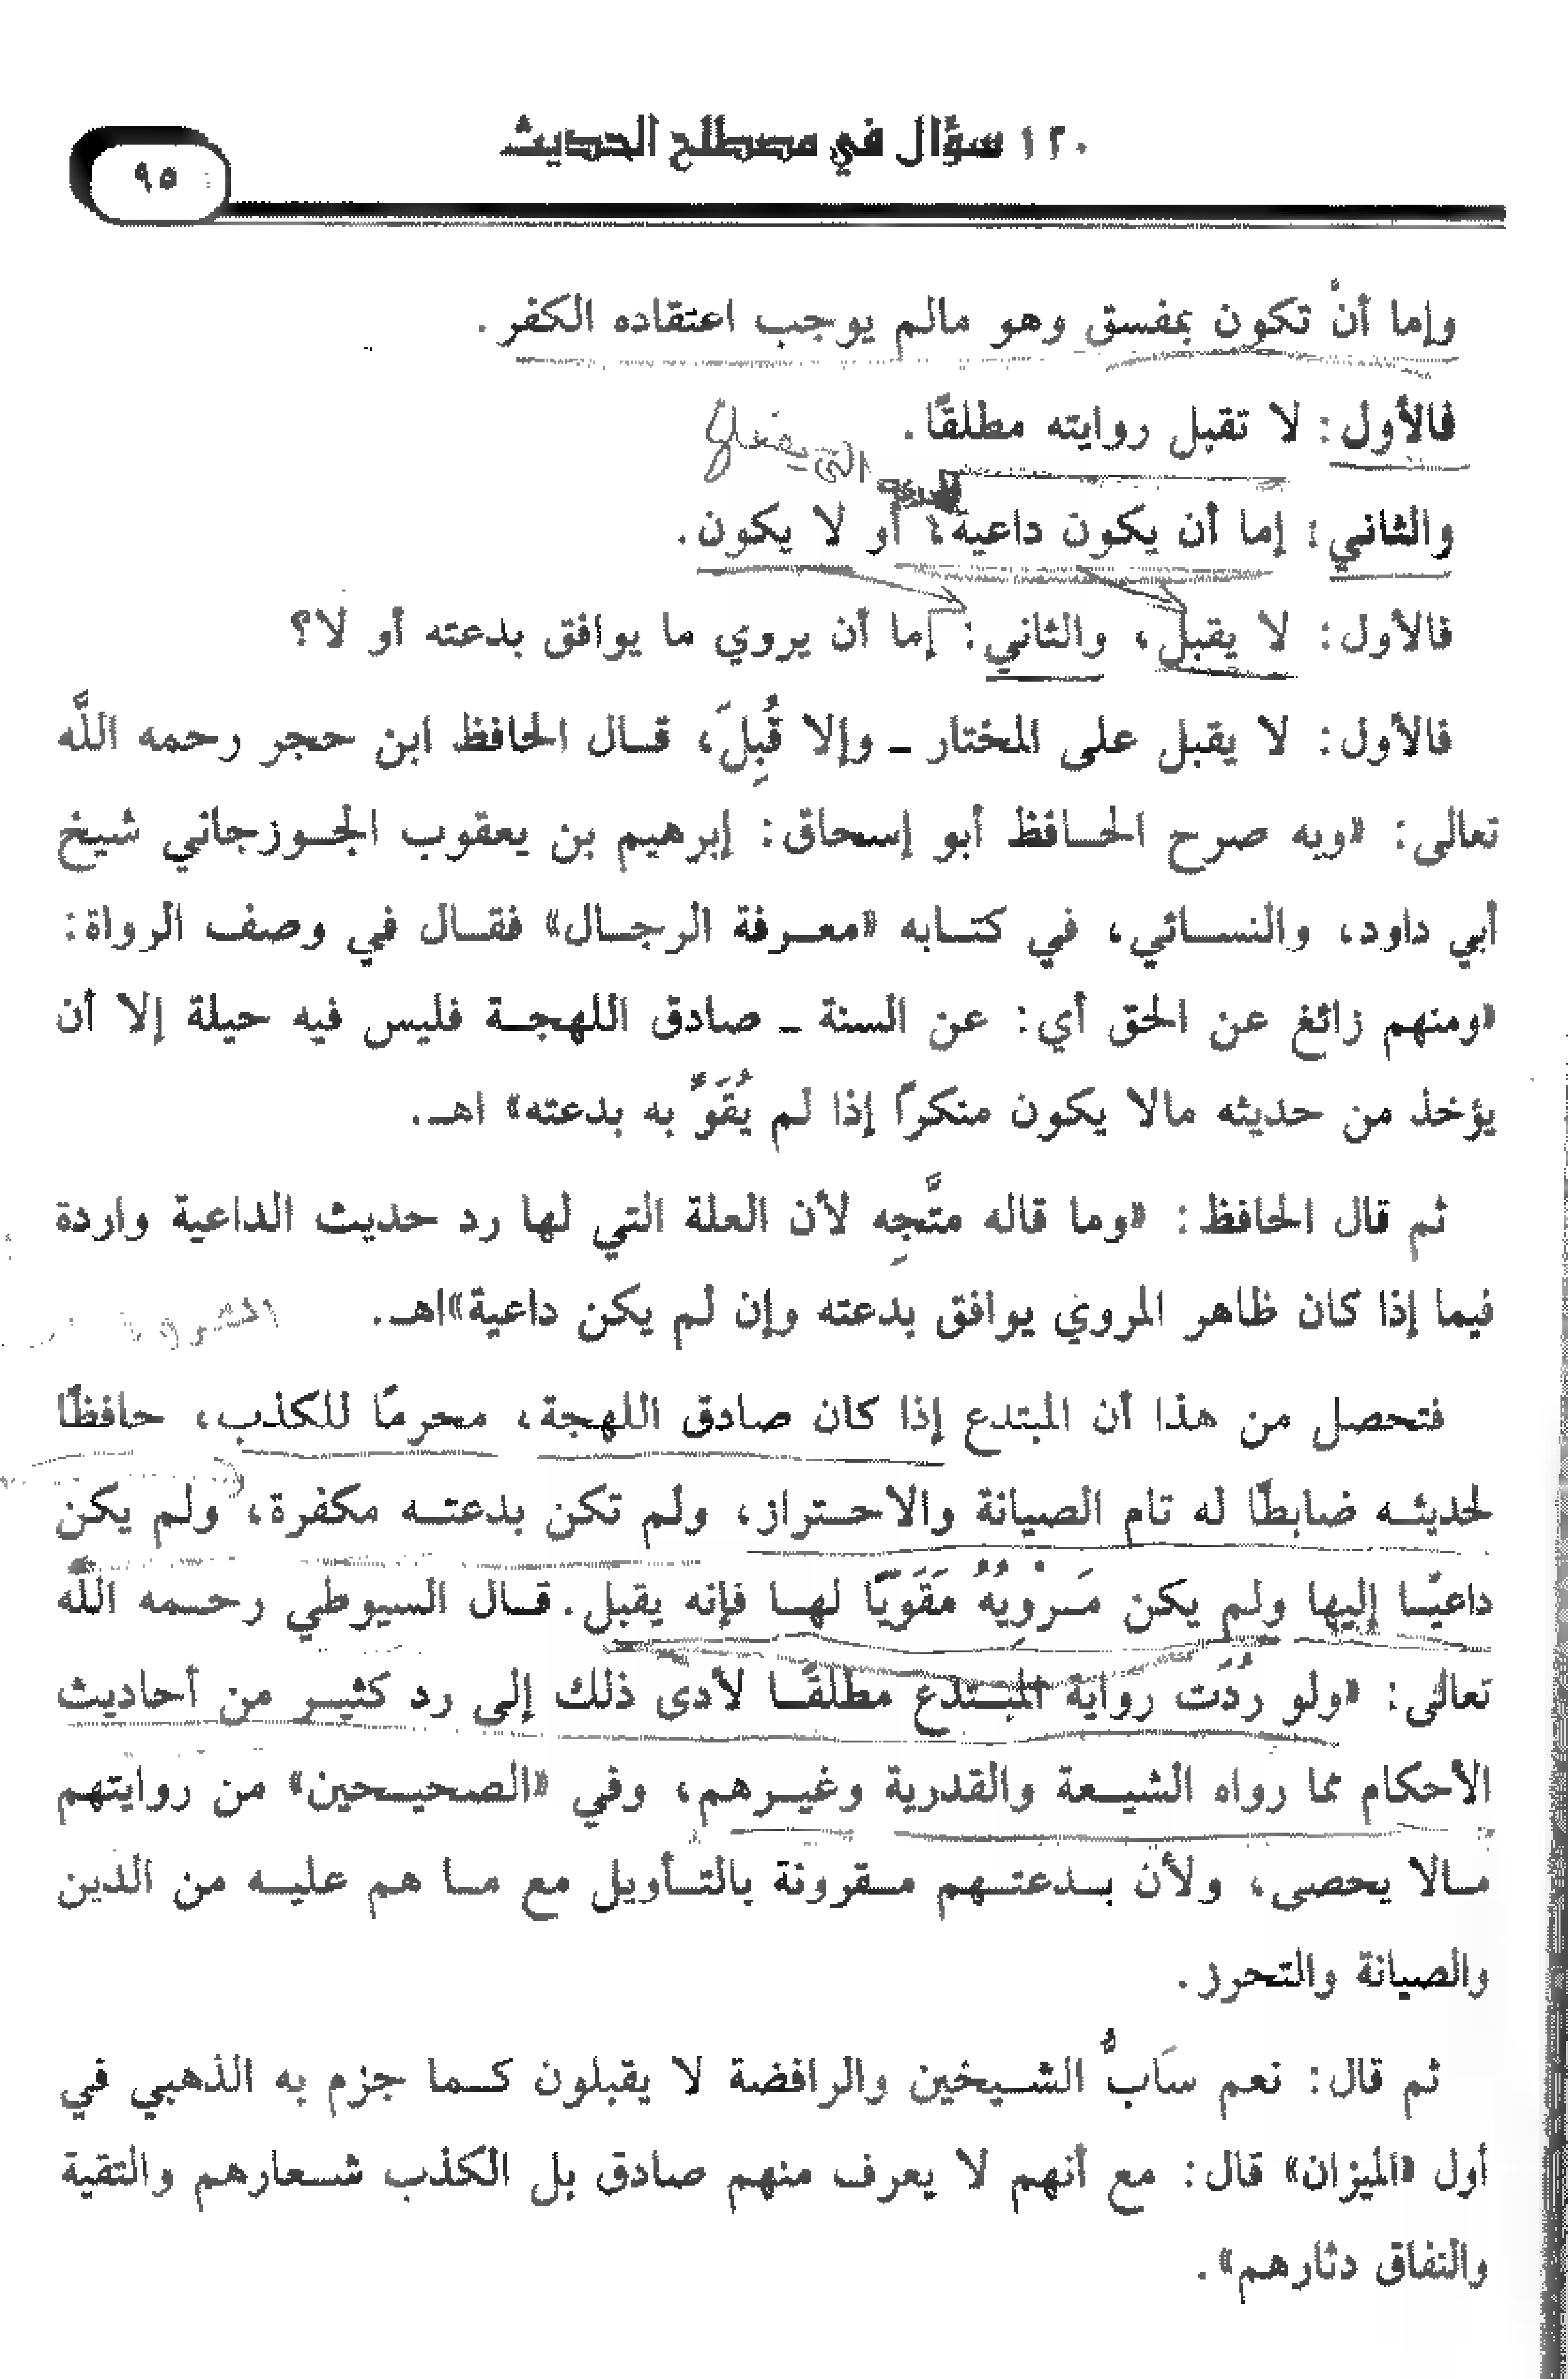 ١٢٠ سؤال في مصطلح الحديث
٩٥
وإما أنْ تكون بمفسق وهو مالم يوجب اعتقاده الكفر.
فالأول: لا تقبل روايته مطلقًا.
والثاني: إما أن يكون داعية، أو لا يكون.
فالأول: لا يقبل، والثاني: إما أن يروي ما يوافق بدعته أو لا؟
فالأول: لا يقبل على المختار ـ وإلا قُبِلَ، قال الحافظ ابن حجر رحمه اللَّه
تعالى: «وبه صرح الحافظ أبو إسحاق: إبرهيم بن يعقوب الجوزجاني شيخ
أبي داود، والنسائي، في كتابه «معرفة الرجال» فقال في وصف الرواة:
«ومنهم زائغ عن الحق أي: عن السنة ـ صادق اللهجة فليس فيه حيلة إلا أن
يؤخذ من حديثه مالا يكون منكرًا إذا لم يُقَوِّ به بدعته» اهـ.
ثم قال الحافظ: «وما قاله متَّجِه لأن العلة التي لها رد حديث الداعية واردة
فيما إذا كان ظاهر المروي يوافق بدعته وإن لم يكن داعية»اهـ.
فتحصل من هذا أن المبتدع إذا كان صادق اللهجة، محرمًا للكذب، حافظًا
لحديثه ضابطًا له تام الصيانة والاحتراز، ولم تكن بدعته مكفرة، ولم يكن
داعيًا إليها ولم يكن مَرْويُهُ مَقَوِيًا لها فإنه يقبل. قال السيوطي رحمه اللَّه
تعالى: «ولو رُدَت رواية المبتدع مطلقًا لأدى ذلك إلى رد كثير من أحاديث
الأحكام مما رواه الشيعة والقدرية وغيرهم، وفي «الصحيحين» من روايتهم
مالا يحصى، ولأن بدعتهم مقرونة بالتأويل مع ما هم عليه من الدين
والصيانة والتحرز.
ثم قال: نعم سَابُّ الشيخين والرافضة لا يقبلون كما جزم به الذهبي في
أول «الميزان» قال: مع أنهم لا يعرف منهم صادق بل الكذب شعارهم والتقية
والنفاق دثارهم».